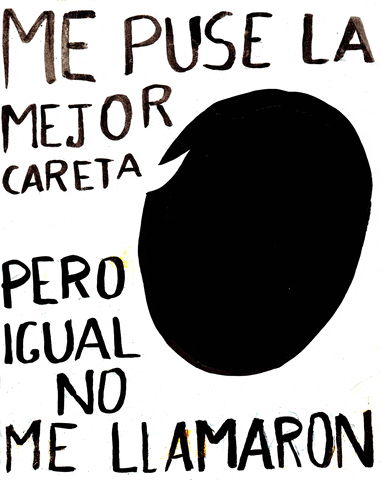 ME PUSE LA
MEJOR
CARETA
PERO
IGUAL
NO
ME LLAMARON